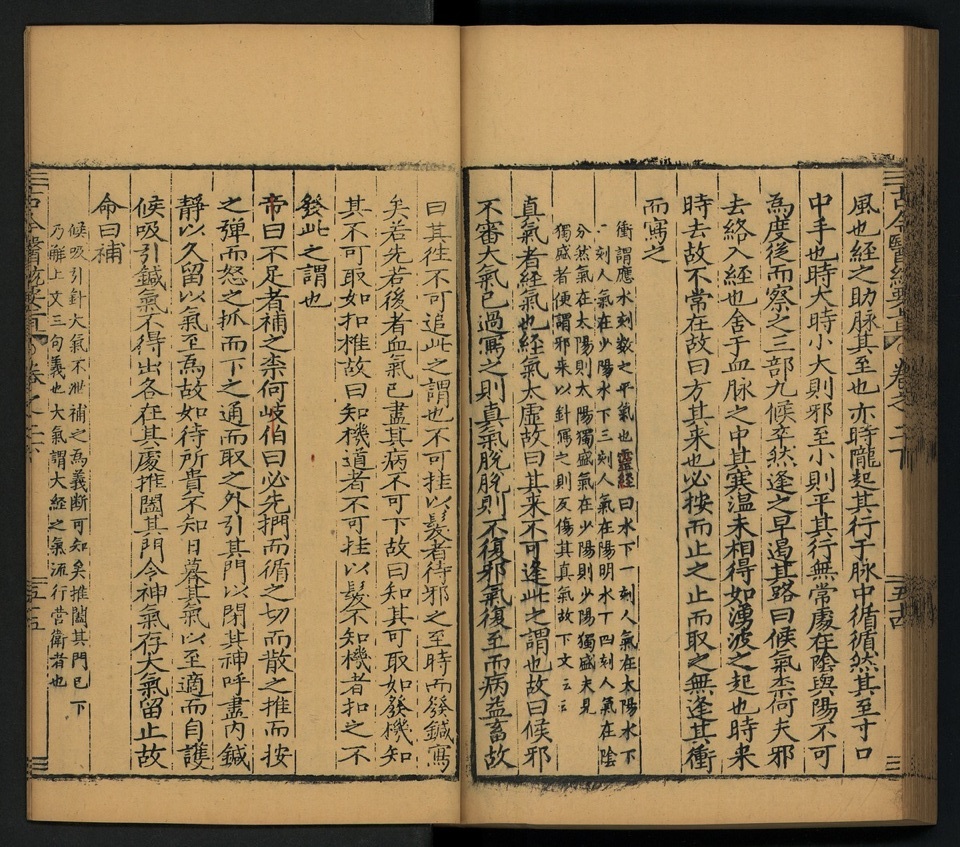 風也經之助脉其至也亦時隴起其行于脉中循循然其至寸口
中手也時大時小大則邪至小則平其行無常處在陰與陽不可
為度後而察之三部九候卒然逢之早遏其路曰候氣柰何夫邪
去絡入經也舍于血脉之中其寒温未相得如湧波之起也時来
時去故不常在故曰方其来也必按而止之止而取之無逢其衝
而寫之
衝謂應水刻數之平氣也靈經曰水下一刻人氣在太陽水下
一刻人氣在少陽水下三刻人氣在陽明水下四刻人氣在陰
分然氣在太陽則太陽獨盛氣在少陽則少陽獨盛夫見
獨盛者便謂邪来以針寫之則反傷其真氣故下文云云
真氣者經氣也經氣太虛故曰其来不可逢此之謂也故曰候邪
不審大氣已過寫之則真氣脫脫則不復邪氣復至而病益畜故
曰其徃不可追此之謂也不可挂以髮者待邪之至時而發鍼寫
矣若先若後者血氣已盡其病不可下故曰知其可取如發機知
其不可取如扣椎故曰知機道者不可挂以髮不知機者扣之不
發此之謂也
帝曰不足者補之柰何岐伯曰必先捫而循之切而散之推而按
之彈而怒之抓而下之通而取之外引其門以閉其神呼盡内鍼
静以久留以氣至為故如待所貴不知日暮其氣以至適而自護
候吸引鍼氣不得出各在其處推闔其門令神氣存大氣留止故
命曰補
候吸引針大氣不泄補之為義斷可知矣推闔其門已下
乃解上文三句義也大氣謂大經之氣流行營衛者也
卷之二下
五十四
五十五